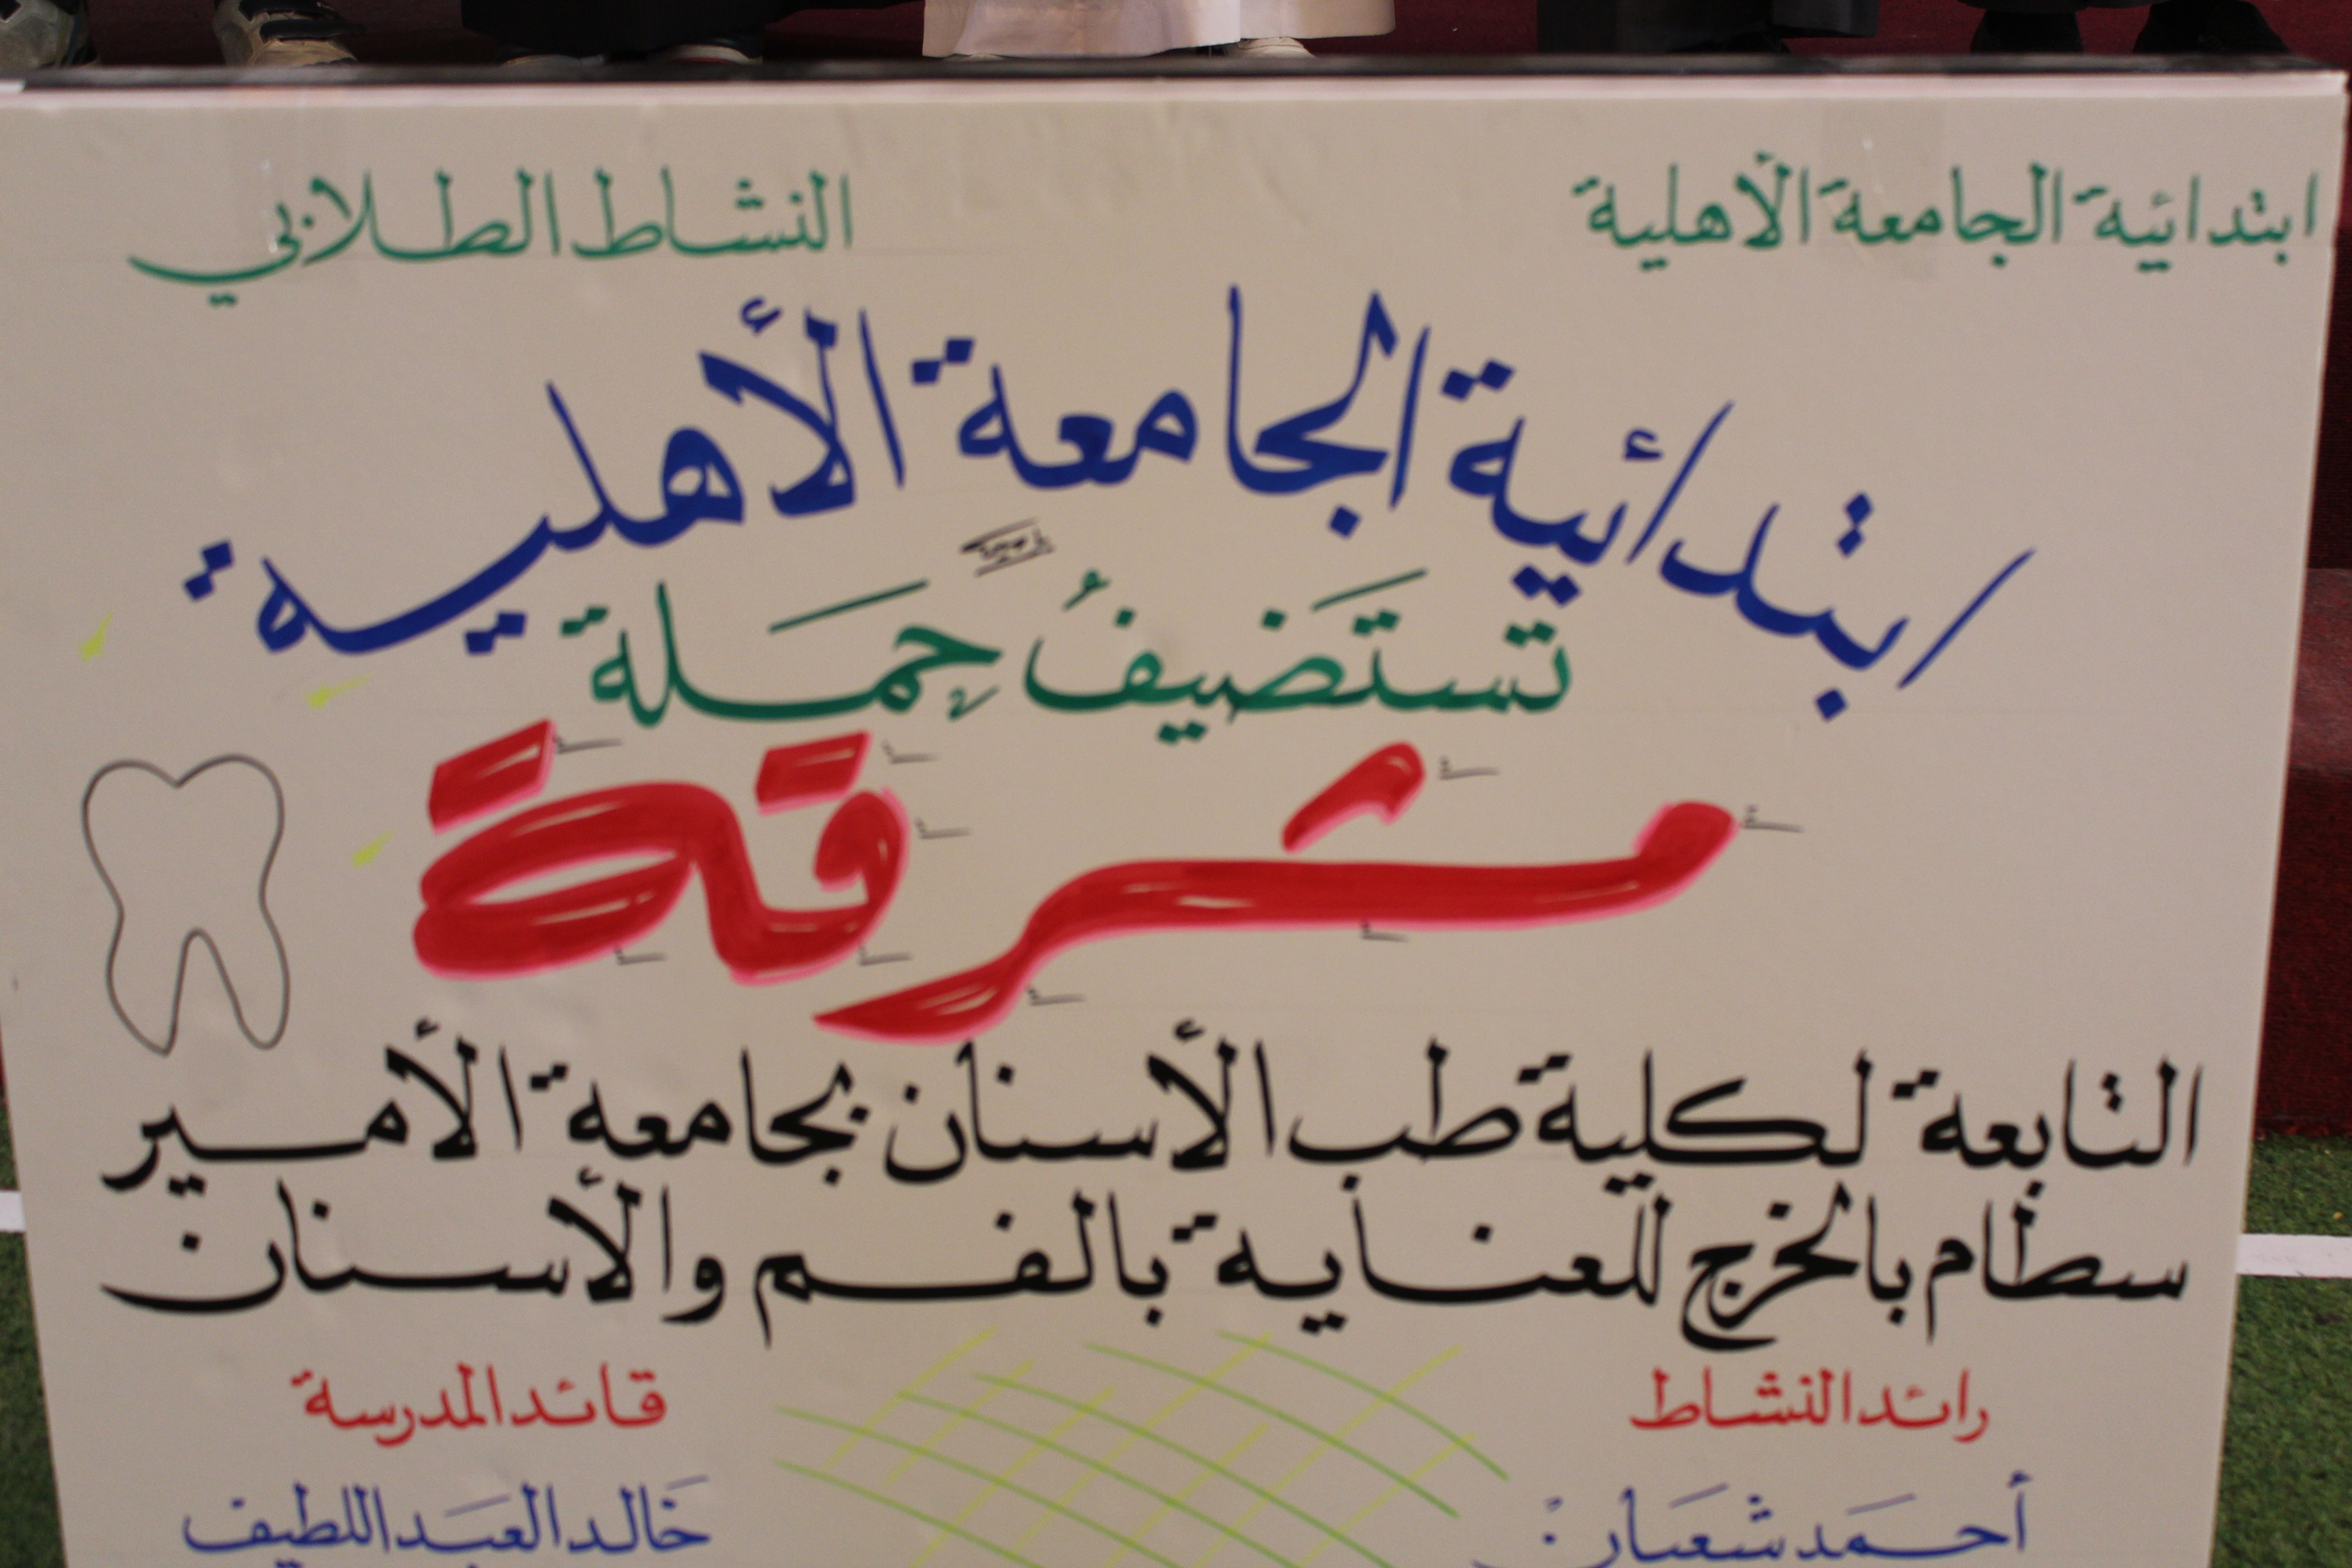 ابتدائية الجامعة الأهلية
النشاط الطلابي
ابتدائية الجامعة الأهلية
تستَضيفُ حِمَلة
مشرقة
التابعة لكلية طب الأسنان بجامعة الأمير
سطام بالخرج للعناية بالفم والأسنان
رائد النشاط
قائد المدرسة
أحمَد شعَبان
خَالد العبَد اللطيف